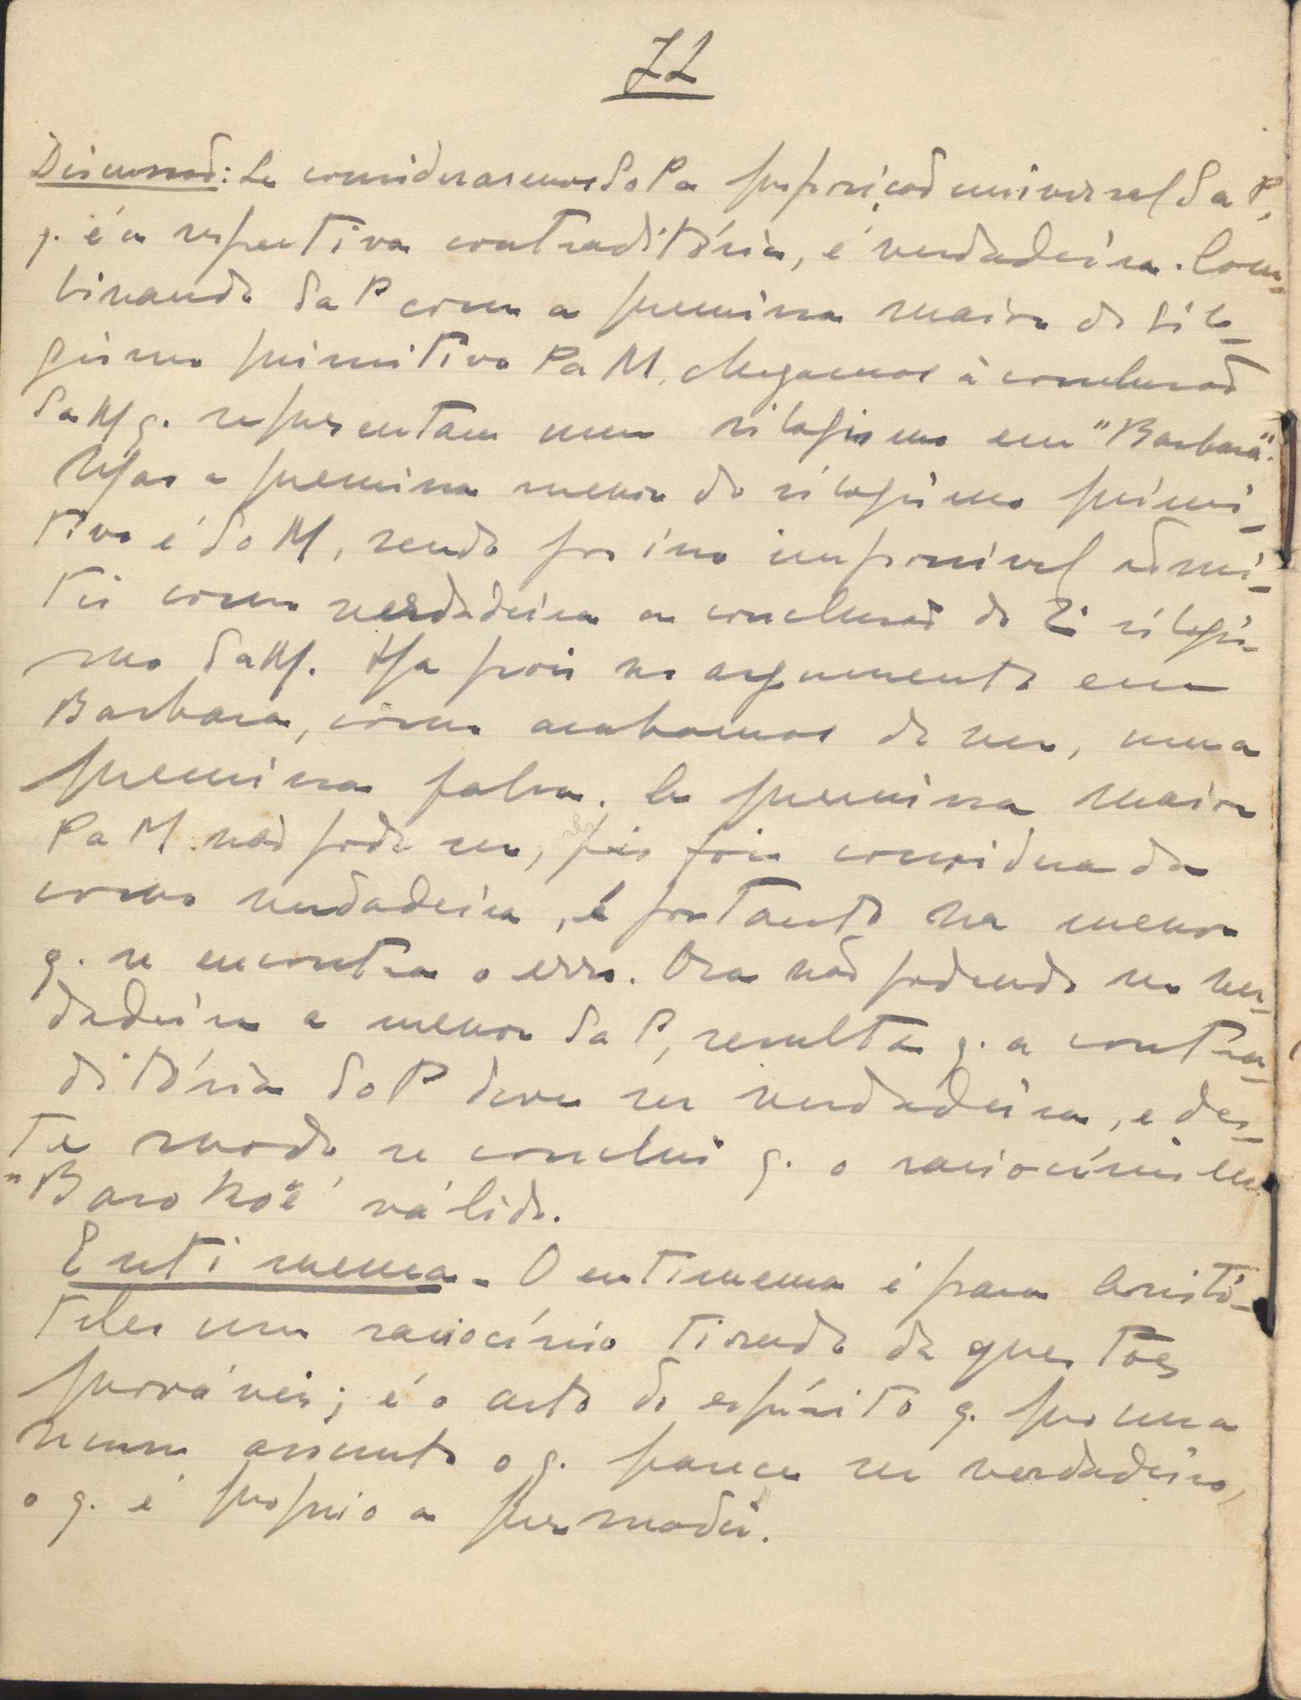 71
Discussão: Se considerarmos SoP a proposição universal SaP,
q. é a respectiva contraditória, é verdadeira. Com-
binando SaP com a premissa maior do silo-
gismo primitivo PaM, chegamos à conclusão
SaM q. representam um silogismo em "Barbara".
Mas a premissa menor do silogismo primi-
tivo é SoM, sendo por isso impossível admi-
tir como verdadeira a conclusão do 2º silogis-
mo SaM. Há pois no argumento em
Barbara, como acabamos de ver, uma
premissa falsa. A premissa maior
PaM não pode ser, pois foi considerada
como verdadeira, é portanto na menor
q. se encontra o erro. Ora não podendo ser ver-
dadeira a menor SaP, resulta q. a contra-
ditória SoP deve ser verdadeira, e des-
te modo se conclui q. o raciocínio em
"Baroko" é válido.
Entimema - O entimema é para Aristó-
teles um raciocínio tirado de questões
prováveis; é o acto do espírito q. procura
num assunto o q. parece ser verdadeiro,
o q. é próprio a persuadir.